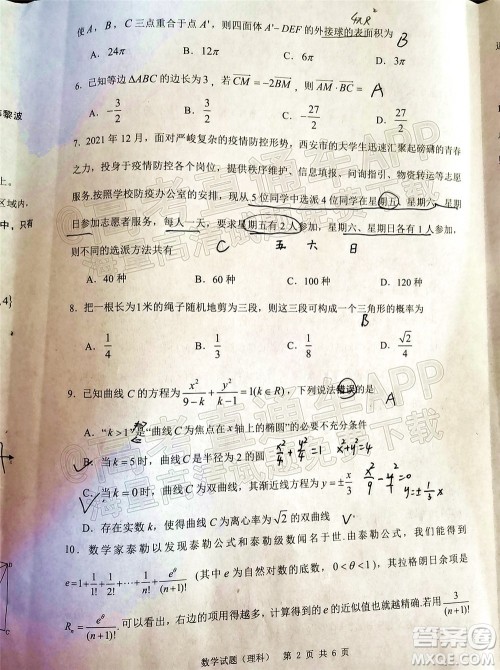 使 A，B，C 三点重合于点 A'，则四面体 A'-DEF 的外接球的表面积为 B
4πR²
A．24π B．12π C．6π D．3π
6．已知等边 ΔABC 的边长为 3，若 CM = -2BM，则 AM·BC = A
A．-3/2 B．3/2 C．-27/2 D．27/2
7．2021 年 12 月，面对严峻复杂的疫情防控形势，西安市的大学生迅速汇聚起磅礴的青春
之力，投身于疫情防控各个岗位，提供秩序维护、信息填报、物资转运等志愿
服务．按照学校防疫办公室的安排，现从 5 位同学中选派 4 位同学在星期五、星期六、星期
日参加志愿者服务，每人一天，要求星期五有 2 人参加，星期六、星期日各有 1 人参加，
则不同的选派方法共有 C 五 六 日
A．40 种 B．48 种 C．60 种 D．120 种
8．把一根长为 1 米的绳子随机地剪为三段，则这三段可构成一个三角形的概率为
B
A．1/4 B．1/3 C．1/8 D．√2/4
9．已知曲线 C 的方程为 x²/(9-k) + y²/(k-1) = 1(k∈R)，下列说法错误的是 A
A．“k>1”是“曲线 C 为焦点在 x 轴上的椭圆”的必要不充分条件
B．当 k=5 时，曲线 C 是半径为 2 的圆 x²/4 + y²/4 = 1 x²+y²=4
C．当 k=0 时，曲线 C 为双曲线，其渐近线方程为 y=±x/3 x²/9 - y²/1 = 0 y=±1/3 x
D．存在实数 k，使得曲线 C 为离心率为 √2 的双曲线 V
10．数学家泰勒以发现泰勒公式和泰勒级数闻名于世．由泰勒公式，我们能得到
e=1+1/1!+1/2!+⋯+1/n!+e^θ/(n+1)! (其中 e 为自然对数的底数，0<θ<1)，其拉格朗日余项是
Rₙ=e^θ/(n+1)!．可以看出，右边的项用得越多，计算得到的 e 的近似值也就越精确．若 3/(n+1)!
数学试题（理科） 第 2 页 共 6 页